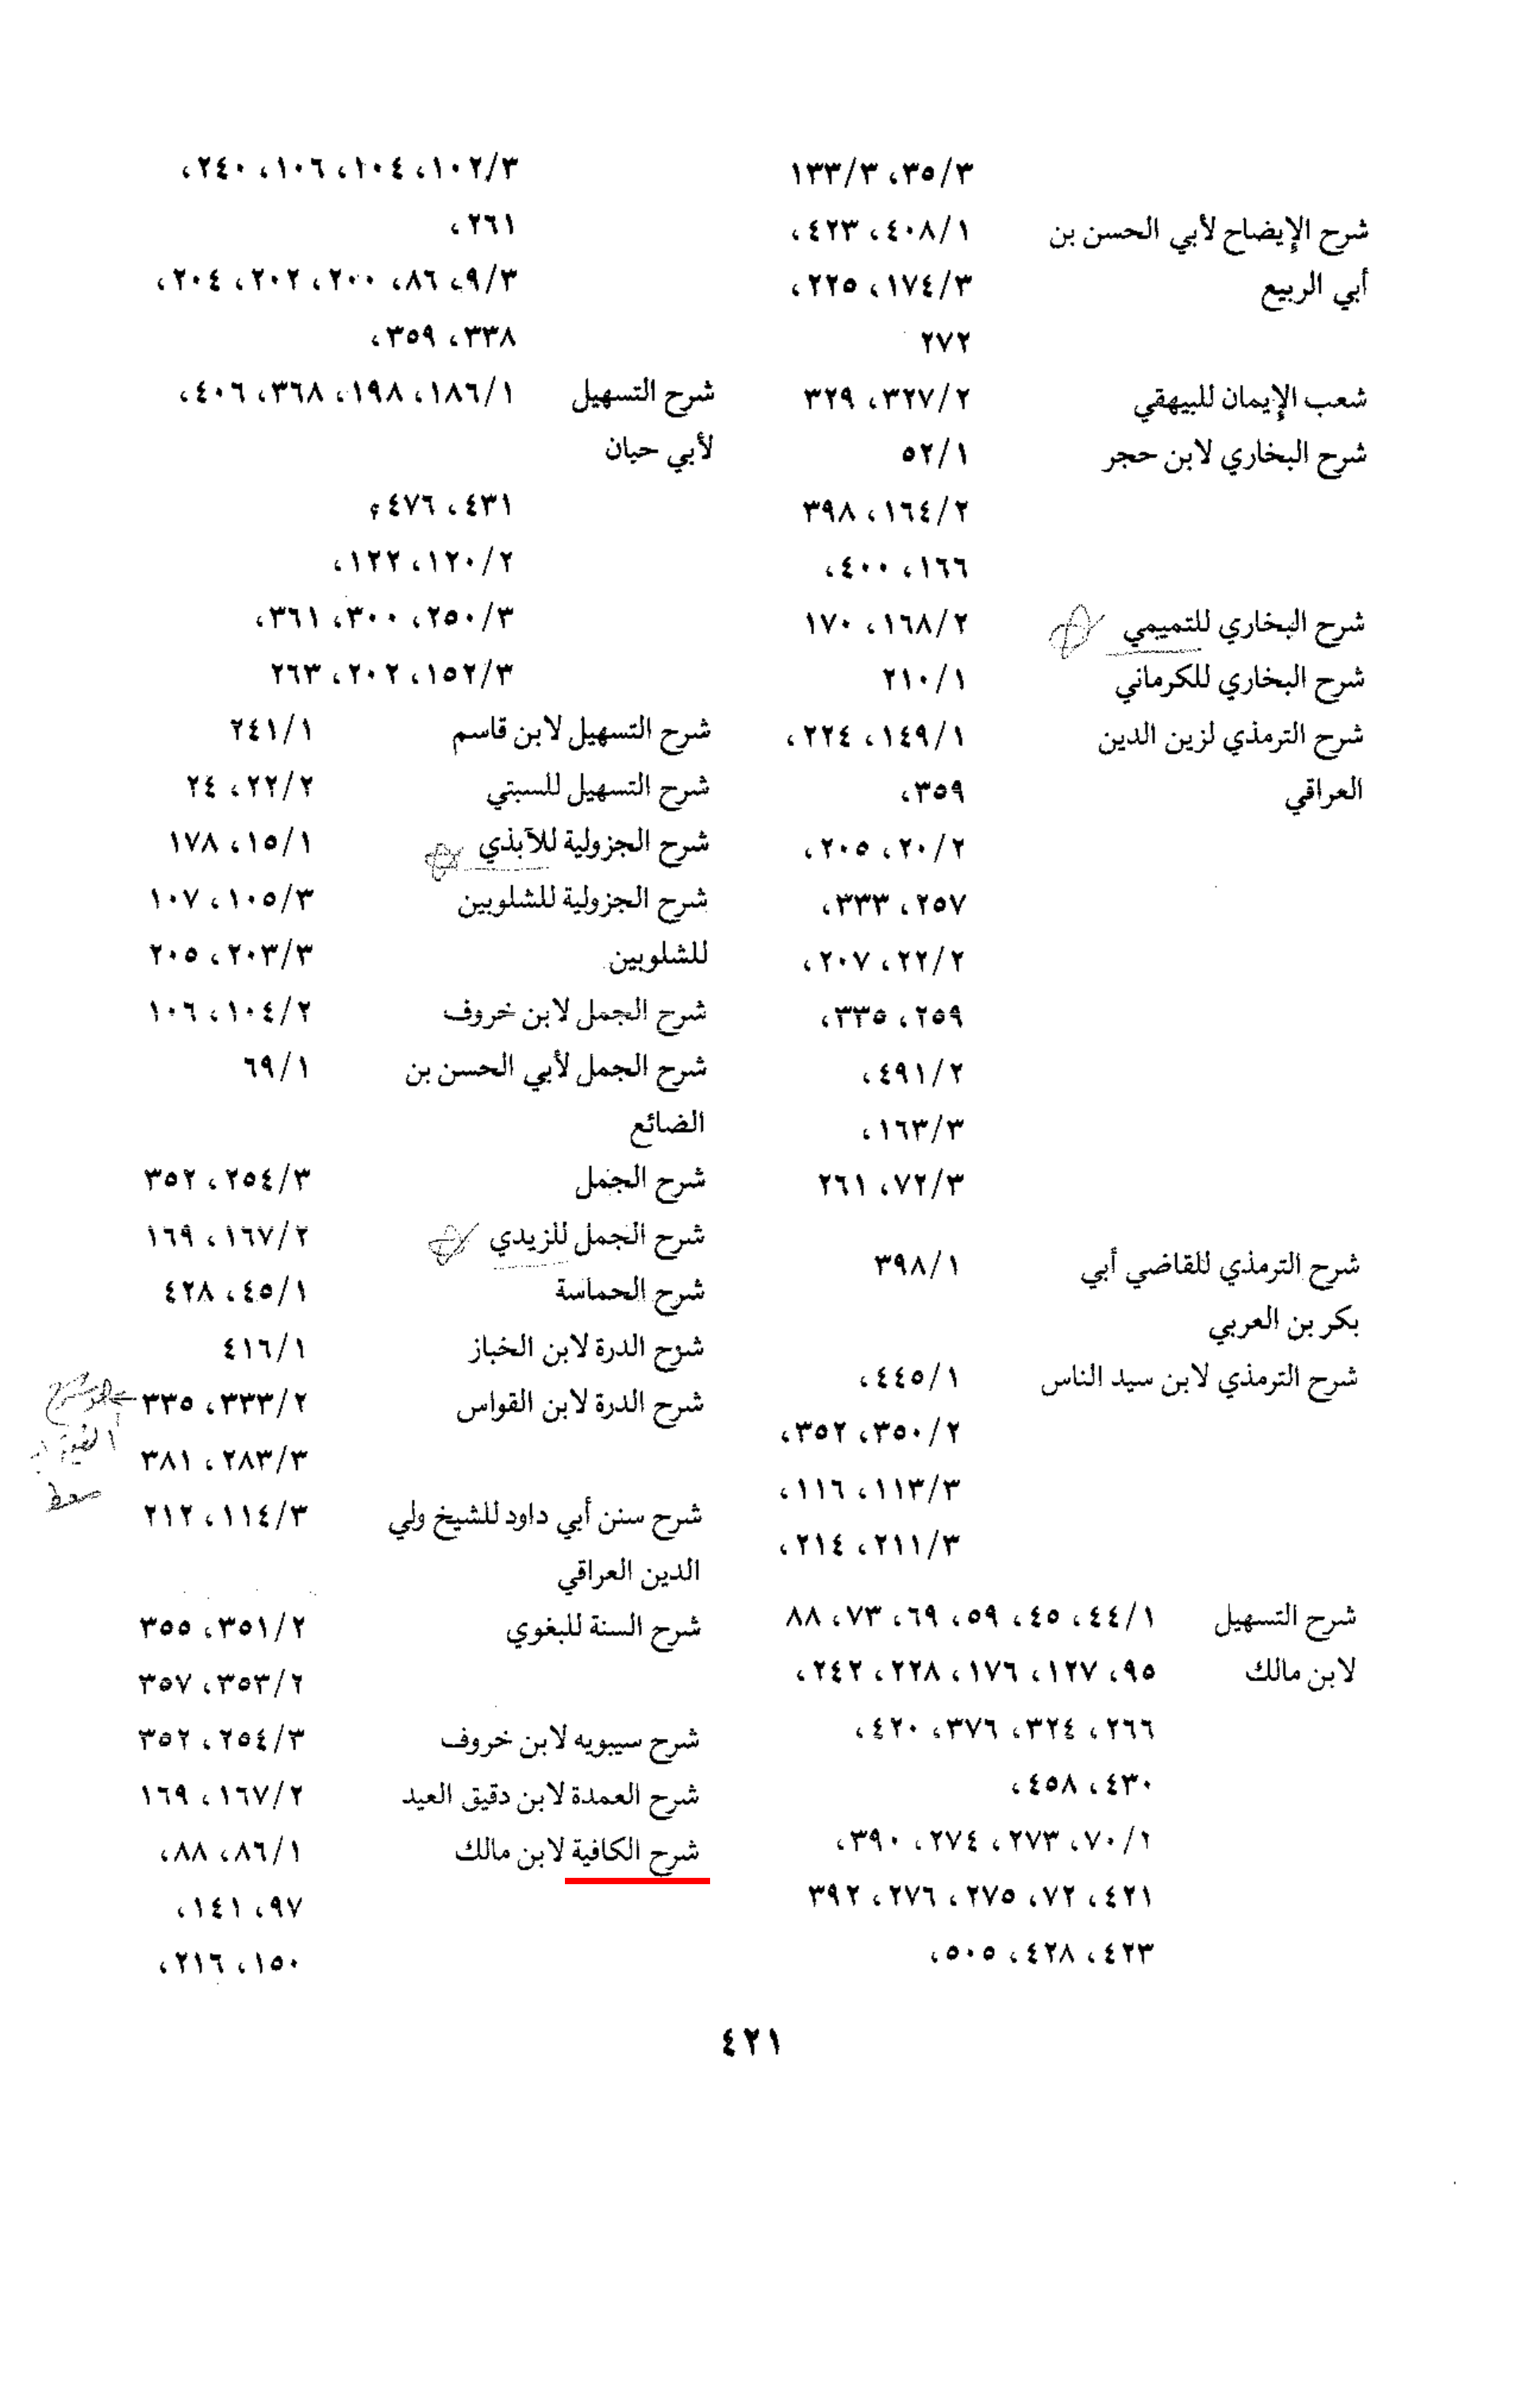 ٣٥/٣، ١٣٣/٣
شرح الإيضاح لأبي الحسن بن ٤٠٨/١، ٤٢٣،
أبي الربيع ١٧٤/٣، ٢٢٥،
٢٧٢
شعب الإيمان للبيهقي ٣٢٧/٢، ٣٢٩
شرح البخاري لابن حجر ٥٢/١
١٦٤/٢، ٣٩٨
١٦٦، ٤٠٠،
شرح البخاري للتميمي ١٦٨/٢، ١٧٠
شرح البخاري للكرماني ٢١٠/١
شرح الترمذي لزين الدين ١٤٩/١، ٢٢٤،
العراقي ٣٥٩،
٢٠/٢، ٢٠٥،
٢٥٧، ٣٣٣،
٢٢/٢، ٢٠٧،
٢٥٩، ٣٣٥،
٤٩١/٢،
١٦٣/٣،
٧٢/٣، ٢٦١
شرح الترمذي للقاضي أبي ٣٩٨/١
بكر بن العربي
شرح الترمذي لابن سيد الناس ٤٤٥/١،
٣٥٠/٢، ٣٥٢،
١١٣/٣، ١١٦،
٢١١/٣، ٢١٤،
شرح التسهيل ٤٤/١، ٤٥، ٥٩، ٦٩، ٧٣، ٨٨
لابن مالك ٩٥، ١٢٧، ١٧٦، ٢٢٨، ٢٤٢،
٢٦٦، ٣٢٤، ٣٧٦، ٤٢٠،
٤٣٠، ٤٥٨،
٧٠/٢، ٢٧٣، ٢٧٤، ٣٩٠،
٤٢١، ٧٢، ٢٧٥، ٢٧٦، ٣٩٢
٤٢٣، ٤٢٨، ٥٠٥،
١٠٢/٣، ١٠٤، ١٠٦، ٢٤٠،
٢٦١،
٩/٣، ٨٦، ٢٠٠، ٢٠٢، ٢٠٤،
٣٣٨، ٣٥٩،
شرح التسهيل ١٨٦/١، ١٩٨، ٣٦٨، ٤٠٦،
لأبي حيان
٤٣١، ٤٧٦؛
١٢٠/٢، ١٢٢،
٢٥٠/٣، ٣٠٠، ٣٦١،
١٥٢/٣، ٢٠٢، ٢٦٣
شرح التسهيل لابن قاسم ٢٤١/١
شرح التسهيل للسبتي ٢٢/٢، ٢٤
شرح الجزولية للآبذي ١٥/١، ١٧٨
شرح الجزولية للشلوبين ١٠٥/٣، ١٠٧
للشلوبين ٢٠٣/٣، ٢٠٥
شرح الجمل لابن خروف ١٠٤/٢، ١٠٦
شرح الجمل لأبي الحسن بن ٦٩/١
الضائع
شرح الجمل ٢٥٤/٣، ٣٥٢
شرح الجمل للزيدي ١٦٧/٢، ١٦٩
شرح الحماسة ٤٥/١، ٤٢٨
شرح الدرة لابن الخباز ٤١٦/١
شرح الدرة لابن القواس ٣٣٣/٢، ٣٣٥
٢٨٣/٣، ٣٨١
شرح سنن أبي داود للشيخ ولي ١١٤/٣، ٢١٢
الدين العراقي
شرح السنة للبغوي ٣٥١/٢، ٣٥٥
٣٥٣/٢، ٣٥٧
شرح سيبويه لابن خروف ٢٥٤/٣، ٣٥٢
شرح العمدة لابن دقيق العيد ١٦٧/٢، ١٦٩
شرح الكافية لابن مالك ٨٦/١، ٨٨،
٩٧، ١٤١،
١٥٠، ٢١٦،
٤٢١